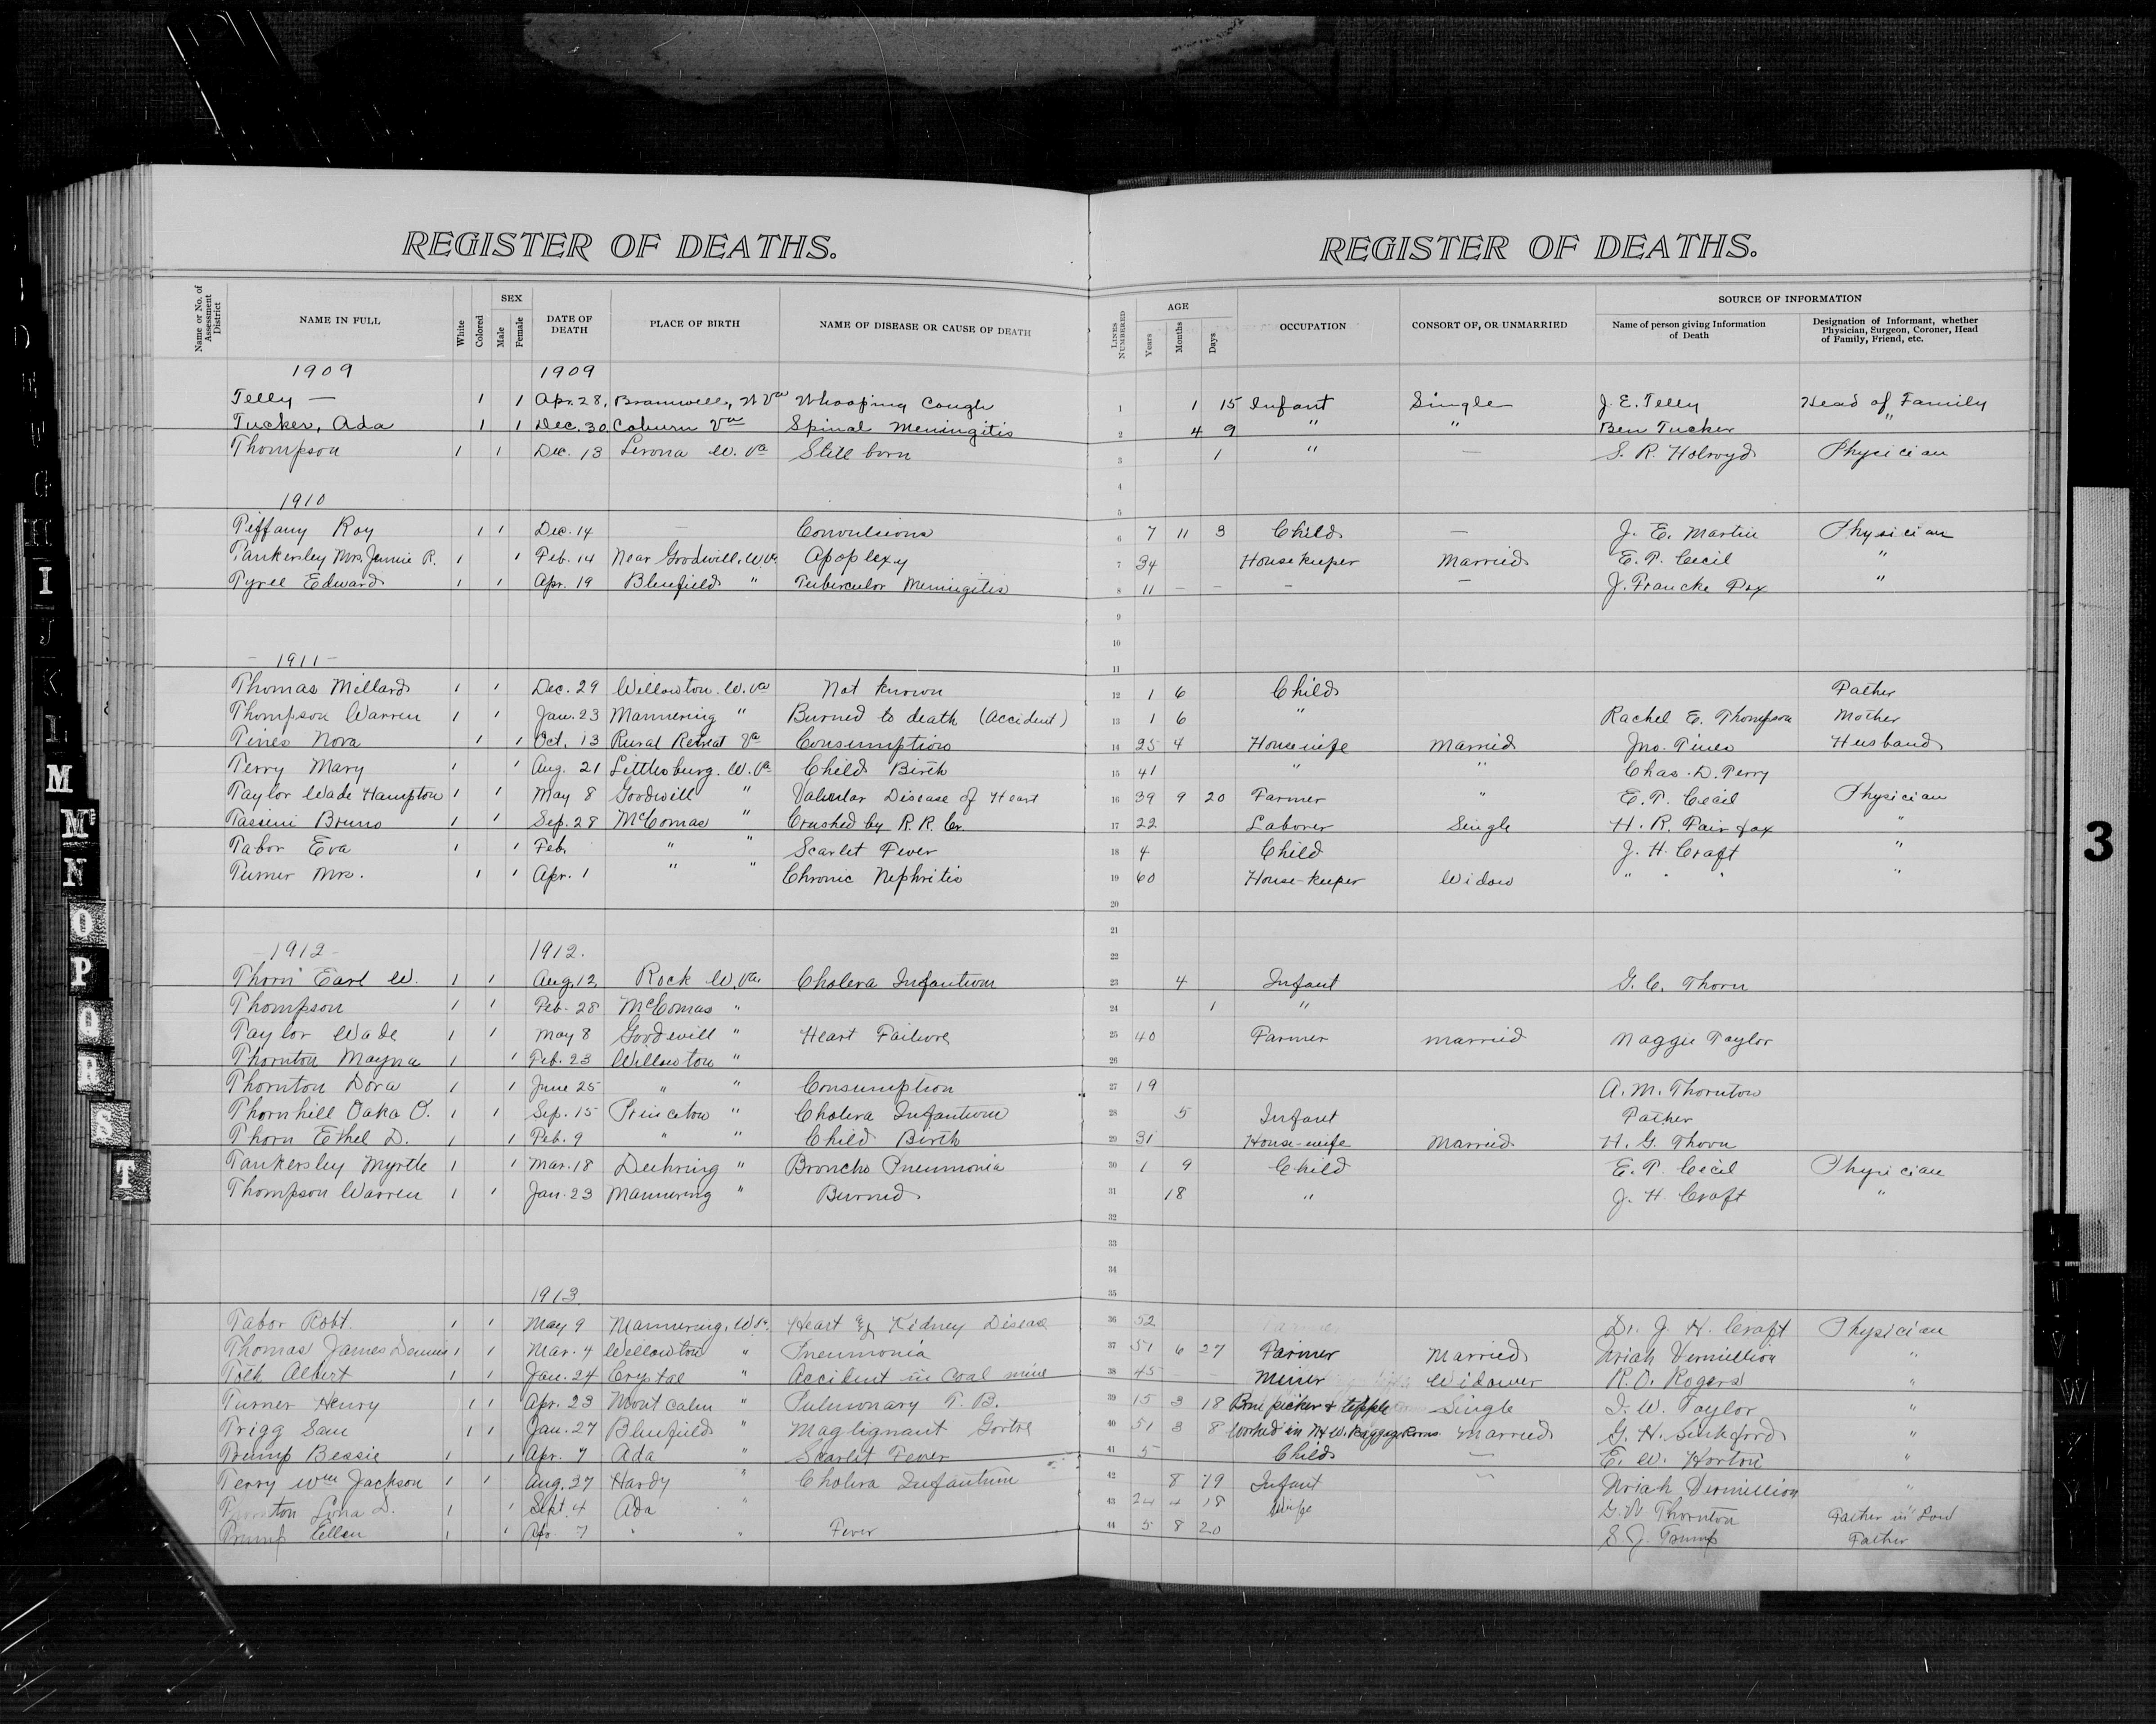 REGISTER OF DEATHS. REGISTER OF DEATHS.
Name or No. of Assessment District | NAME IN FULL | White | Colored | SEX Male Female | DATE OF DEATH | PLACE OF BIRTH | NAME OF DISEASE OR CAUSE OF DEATH | LINES NUMBERED | AGE Years Months Days | OCCUPATION | CONSORT OF, OR UNMARRIED | SOURCE OF INFORMATION Name of person giving Information of Death | Designation of Informant, whether Physician, Surgeon, Coroner, Head of Family, Friend, etc.
1909 1909
Telly — 1 1 Apr. 28, Bramwell, W Va Whooping Cough 1 1 15 Infant Single J. E. Telly Head of Family
Tucker, Ada 1 1 Dec. 30 Coburn Va Spinal Meningitis 2 4 9 " " Ben Tucker "
Thompson 1 1 Dec. 13 Lerona W. Va Still born 3 1 " — S. R. Holroyd Physician
4
1910 5
Tiffany Roy 1 1 Dec. 14 — Convulsions 6 7 11 3 Child — J. E. Martin Physician
Tankersley Mrs. Jennie R. 1 1 Feb. 14 Near Goodwill, W Va Apoplexy 7 34 Housekeeper Married E. T. Cecil "
Tyree Edward 1 1 Apr. 19 Bluefield " Tubercular Meningitis 8 11 — — — — J. Francke Fox "
9
10
- 1911 - 11
Thomas Millard 1 1 Dec. 29 Willowton. W. Va Not known 12 1 6 Child Father
Thompson Warren 1 1 Jan. 23 Mannering " Burned to death (Accident) 13 1 6 " Rachel E. Thompson Mother
Tines Nora 1 1 Oct. 13 Rural Retreat Va Consumption 14 25 4 Housewife Married Jno. Tines Husband
Terry Mary 1 1 Aug. 21 Littlesburg. W. Va Child Birth 15 41 " " Chas. D. Terry
Taylor Wade Hampton 1 1 May 8 Goodwill " Valvular Disease of Heart 16 39 9 20 Farmer " E. T. Cecil Physician
Tasseni Bruno 1 1 Sep. 28 McComas " Crushed by R. R. Cr. 17 22 Laborer Single H. R. Fairfax "
Tabor Eva 1 1 Feb. " " Scarlet Fever 18 4 Child J. H. Craft "
Turner Mrs. 1 1 Apr. 1 " " Chronic Nephritis 19 60 House-keeper Widow " " " "
20
21
- 1912 - 1912. 22
Thorn Earl W. 1 1 Aug. 12 Rock W. Va Cholera Infantum 23 4 Infant G. C. Thorn
Thompson 1 1 Feb. 28 McComas " 24 1 "
Taylor Wade 1 1 May 8 Goodwill " Heart Failure 25 40 Farmer married Maggie Taylor
Thornton Mayna 1 1 Feb. 23 Willowton " 26
Thornton Dora 1 1 June 25 " " Consumption 27 19 A. M. Thornton
Thornhill Oaka O. 1 1 Sep. 15 Princeton " Cholera Infantum 28 5 Infant Father
Thorn Ethel D. 1 1 Feb. 9 " " Child Birth 29 31 House-wife Married H. G. Thorn
Tankersley Myrtle 1 1 Mar. 18 Duhring " Broncho Pneumonia 30 1 9 Child E. T. Cecil Physician
Thompson Warren 1 1 Jan. 23 Mannering " Burned 31 18 " J. H. Craft "
32
33
34
1913 35
Tabor Robt. 1 1 May 9 Mannering, W Va. Heart & Kidney Disease 36 52 Dr. J. H. Craft Physician
Thomas James Dennis 1 1 Mar. 4 Willowton " Pneumonia 37 51 6 27 Farmer Married Uriah Vermillion "
Tolk Albert 1 1 Jan. 24 Crystal " Accident in coal mine 38 45 — — Miner Widower R. O. Rogers "
Turner Henry 1 1 Apr. 23 Mont calm " Pulmonary T. B. 39 15 3 18 Bone picker & tipple Single I. W. Taylor "
Trigg Sam 1 1 Jan. 27 Bluefield " Maglignant Goitre 40 51 3 8 Worked in N & W. Baggage Room Married G. H. Sinkford "
Trump Bessie 1 1 Apr. 7 Ada " Scarlet Fever 41 5 Child — E. W. Horton "
Terry Wm Jackson 1 1 Aug. 27 Hardy " Cholera Infantum 42 8 19 Infant — Uriah Vermillion "
Thornton Lona D. 1 1 Sept. 4 Ada " 43 24 4 18 Wife G. W Thornton Father in Law
Trump Ellen 1 1 Apr 7 " " Fever 44 5 8 20 S. J. Trump Father
I
J
K
L
M
Mc
N
O
P
Q
R
S
T
3